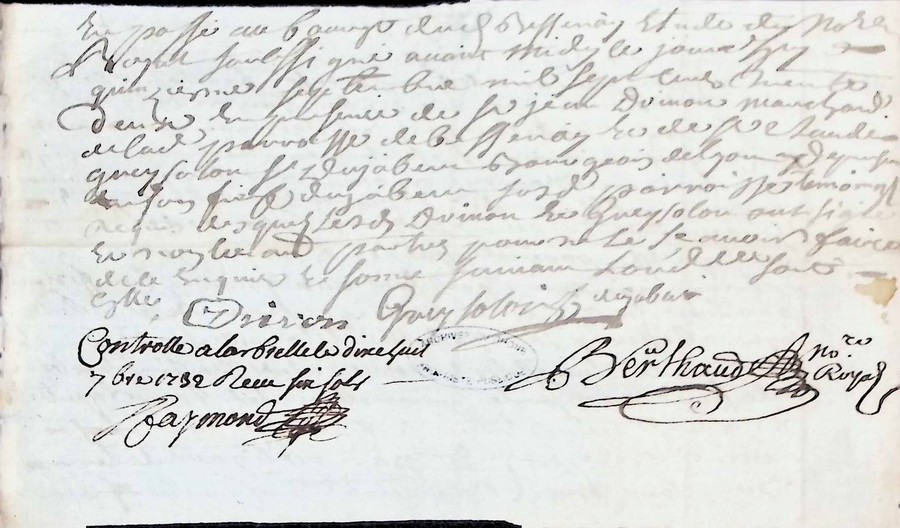 et passé au bourg dud Bessenay Etude du no.re
Royal soussigné avant midy le jourdhuy
quinzieme septembre mil sept cens trente
deux En presence de Sr jean Duinon marchand
de lad parroisse de bessenay Et de Sr Claude
gueysolon Sr Dujabert Bourgeois de lyon
fief dujabert susd parroisse temoins
requis lesquels Duinon Et Gueysolon ont signé
Et non lesd parties pour ne le sçavoir faire
de ce Enquis Et sommé suivant lord
Duinon Gueysolon dujabert
Controlle a larbrelle le dixsept
7bre 1732 Receu six sols
Raymond
Berthaud no.re Royal
ARCHIVES RHONE